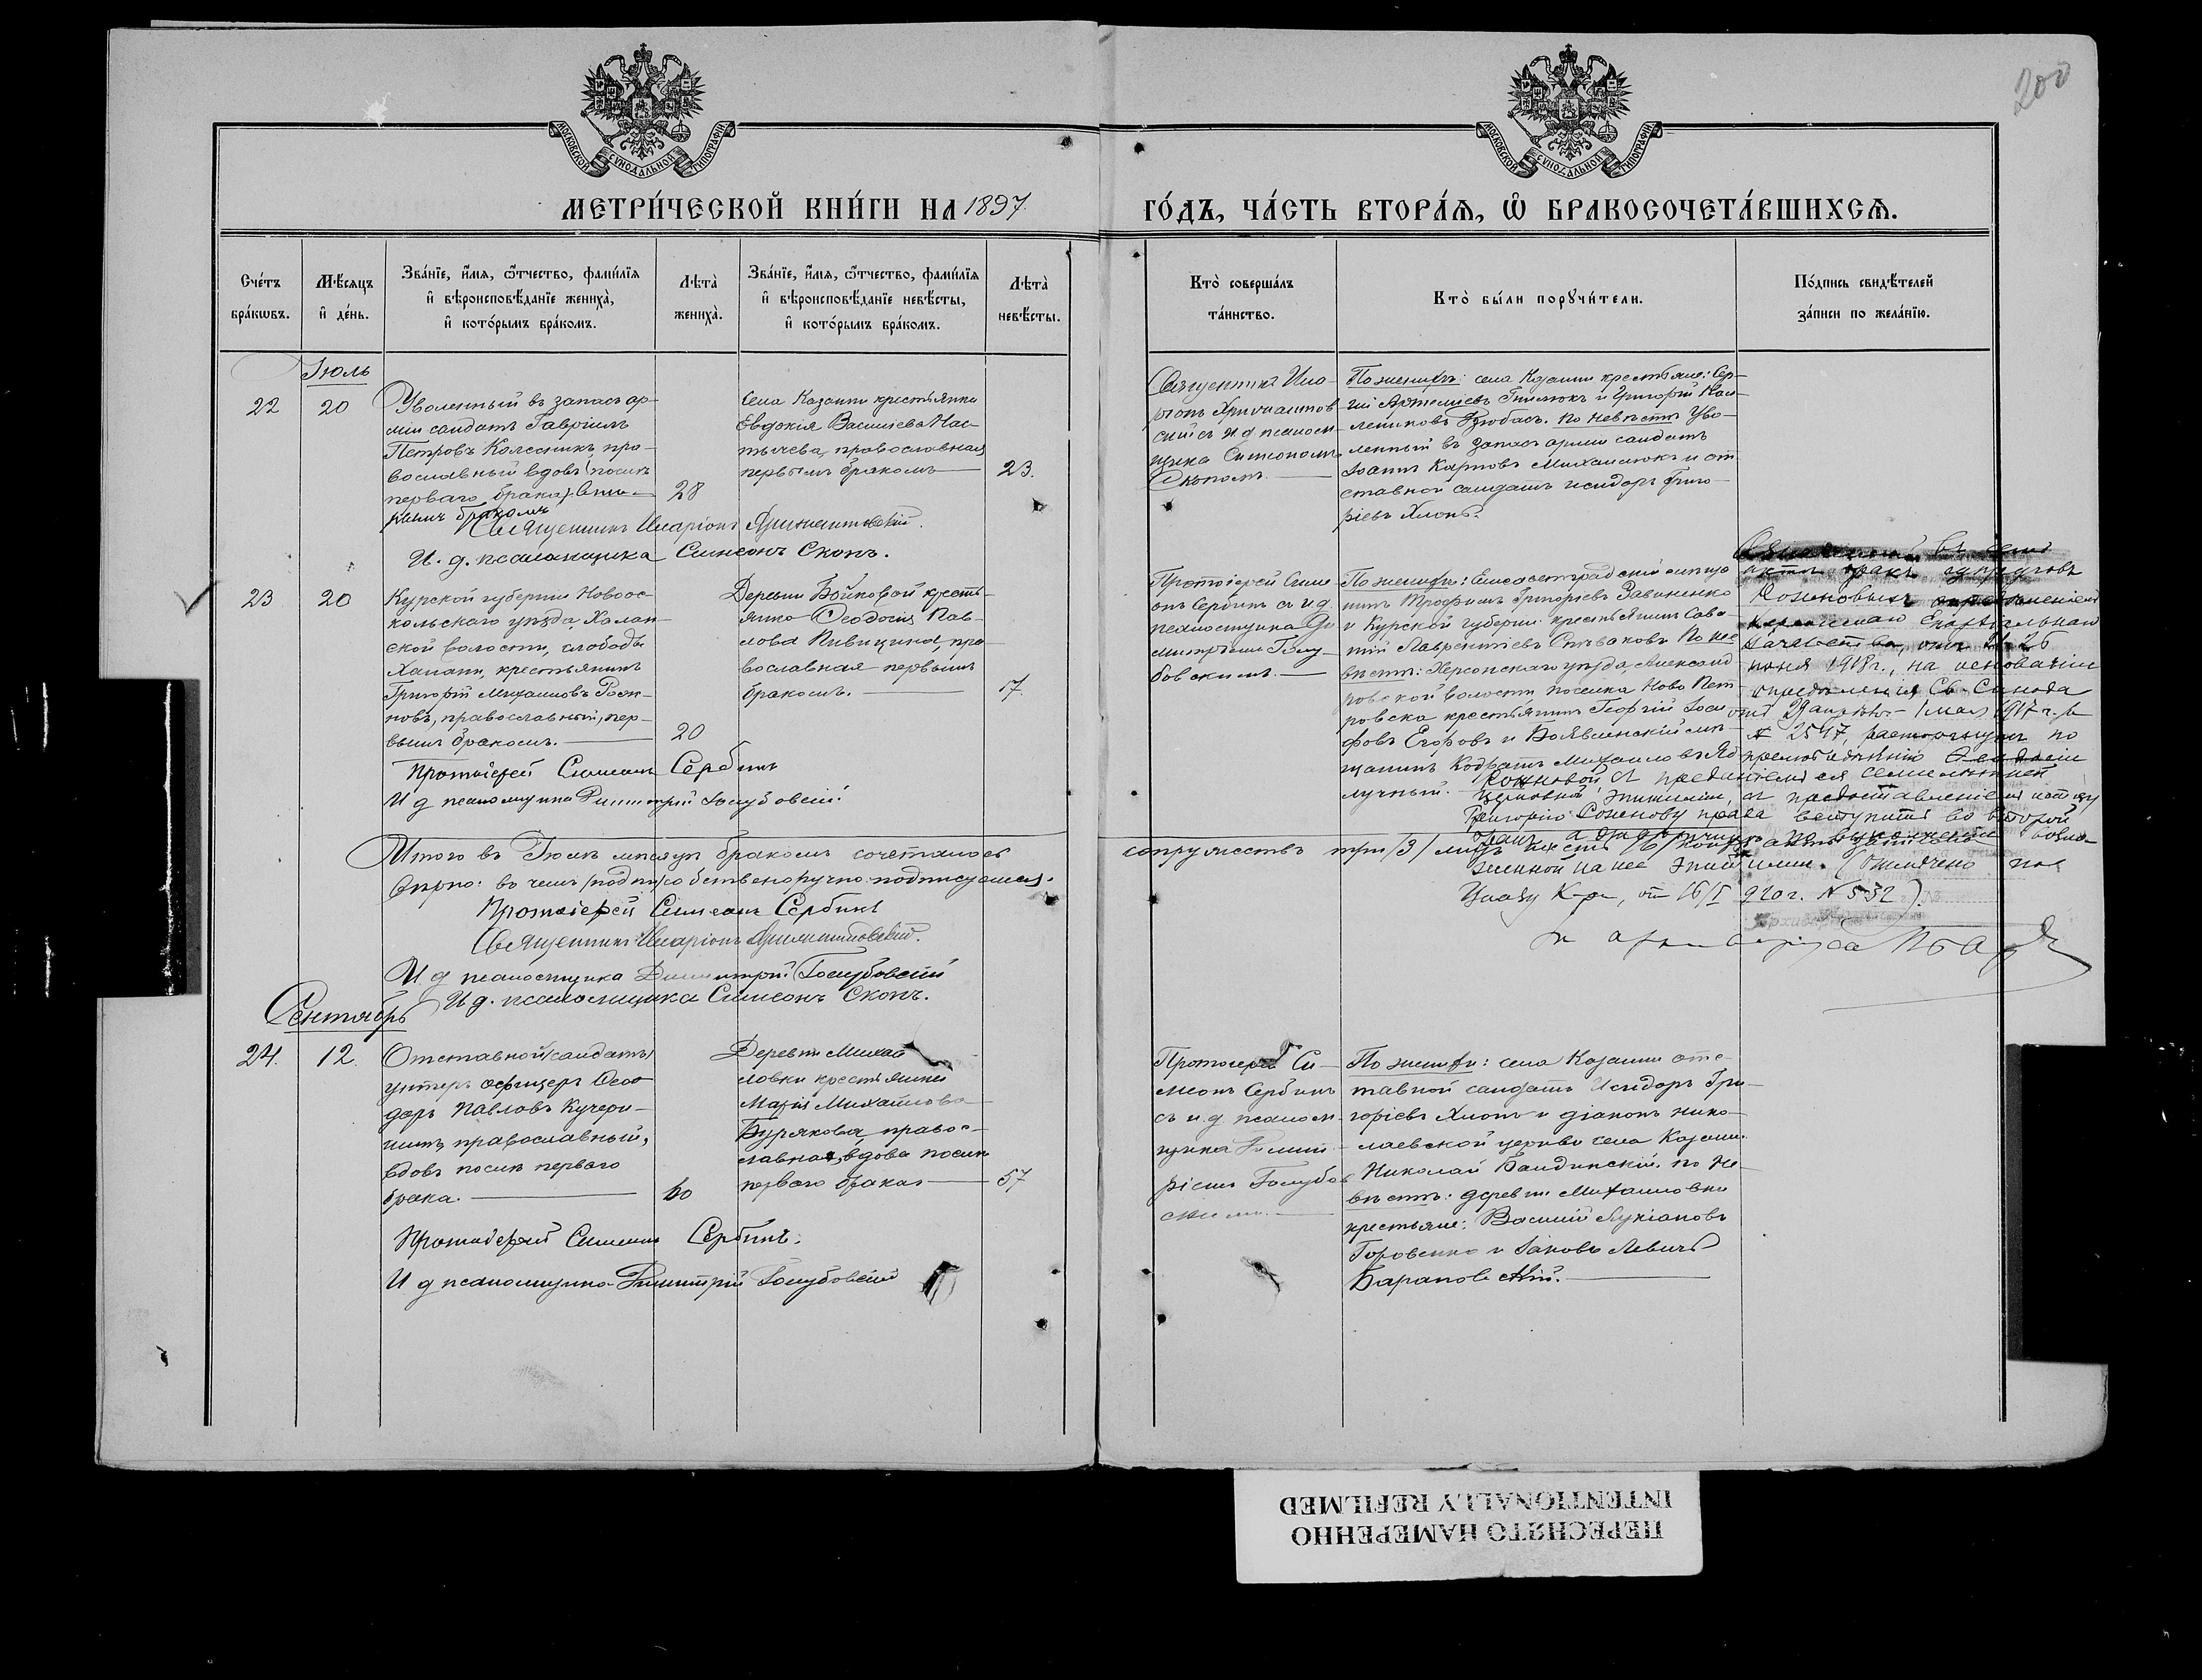 200
МОСКОВСКОЙ СѴНОДАЛЬНОЙ ТИПОГРАФІИ
МОСКОВСКОЙ СѴНОДАЛЬНОЙ ТИПОГРАФІИ
МЕТРИ́ЧЕСКОЙ КНИ́ГИ НА 1897.
ГО́ДЪ, ЧА́СТЬ ВТОРА́Ѧ, Ѽ БРАКОСОЧЕТА́ВШИХСѦ.
Сче́тъ
бра́кѡвъ.
Мѣ́сѧцъ
и҆ де́нь.
Зва́нїе, и҆́мѧ, ѻ҆́тчество, фами́лїѧ
и҆ вѣроисповѣ́данїе жениха̀,
и҆ кото́рымъ бра́комъ.
Лѣ́та̀
жениха̀.
Зва́нїе, и҆́мѧ, ѻ҆́тчество, фами́лїѧ
и҆ вѣроисповѣ́данїе невѣ́сты,
и҆ кото́рымъ бра́комъ.
Лѣ́та̀
невѣ́сты.
Кто̀ соверша́лъ
та́инство.
Кто̀ бы́ли порꙋчи́тели.
По́дпись свидѣ́телей
за́писи по жела́нїю.
Іюль
22
20
Уволенный въ запасъ ар-
міи солдатъ Гавріилъ
Петровъ Колесникъ, пра-
вославный вдовъ послѣ
перваго брака, вто-
рымъ бракомъ
28
Села Казанки крестьянка
Евдокія Васильева Нас-
тычева, православная
первымъ бракомъ
23.
Священникъ Ила-
ріонъ
скій съ и д псалом-
щика Симеономъ
Скопомъ.
По женихѣ: села Казанки крестьяне: Сер-
гій Артемьевъ и Григорій Кал-
лениковъ Дзюбасъ. По невѣстѣ Уво-
ленный въ запасъ арміи солдатъ
Іоаннъ Карповъ Михалюкъ и от-
ставной солдатъ Исидоръ Григо-
ріевъ Хлопъ.
Священникъ Иларіонъ
И. д. псаломщика Симеонъ Скопъ.
23
20
Курской губерніи Новоос-
кольскаго уѣзда, Халан-
ской волости, слободы
Халани, крестьянинъ
Григорій Михаиловъ Рож-
новъ, православный, пер-
вымъ бракомъ.
20
Деревни Бойковой кресть-
янка Ѳеодосія Пав-
лова Пивицина, пра-
вославная первымъ
бракомъ.
17.
Протоіерей Симе-
онъ Сербинъ съ и д.
псаломщика Ди-
митріемъ Голу-
бовскимъ.
По женихѣ: Елисаветградскій мѣща-
нинъ Трофимъ Григоріевъ Заваненко
и Курской губерніи крестьянинъ Сава-
тій Лаврентіевъ Спѣваковъ. По не-
вѣстѣ: Херсонскаго уѣзда, Александ-
ровской волости поселка Ново Пет-
ровска крестьянинъ Георгій Іоси-
фовъ Егоровъ и Бояв­ленскій мѣ-
щанинъ Кодратъ Михаиловъ
лучный.
въ семъ
актѣ бракъ супруговъ
Рожновыхъ опредѣленіемъ
Епархіальнаго
Начальства, отъ 21-26
іюня 1918 г., на основаніи
опредѣленія Св. Синода
отъ 29 апрѣля - 1 мая 1917 г. за
№ 2597, расторгнутъ по
прелюбодѣянію Ѳеодосіи
Рожновой, съ преданіемъ ея семилѣтней
церковной эпитиміи, съ предоставленіемъ истцу
Григорію Рожнову права вступить во второй
бракъ, а отвѣтчицѣ по выполненіи возло-
женной на нее эпитиміи. (Отмѣчено по
Указу К-ріи, от 16/I 920 г. № 552).
Протоіерей Симеонъ Сербинъ
И д псаломщика Димитрій Голубовскій.
Итого въ Іюлѣ мѣсяцѣ бракомъ сочеталось
супружествъ три /3/ лицъ шесть /6/
Вѣрно: въ чемъ /подпи/ собственноручно подписуемся.
Протоіерей Симеонъ Сербинъ
Священникъ Иларіонъ
И д псаломщика Димитрій Голубовскій
И д. псаломщика Симеонъ Скопъ.
Сентябрь
24.
12.
Отставной /солдатъ/
унтеръ офицеръ Ѳео-
доръ Павловъ Кучеря-
ченко, православный,
вдовъ послѣ перваго
брака.
60
Деревни Михай-
ловки крестьянка
Марія Михайлова
Бурякова, правос-
лавная, вдова послѣ
перваго брака
57
Протоіерей Си-
меонъ Сербинъ
съ и.д псалом-
щика Димит-
ріемъ Голубов-
скимъ.
По женихѣ: села Казанки отс-
тавной солдатъ Исидоръ Гри-
горіевъ Хлопъ и діаконъ Нико-
лаевской церкви села Казанки
Николай Бандинскій. по не-
вѣстѣ: деревни Михаиловки
крестьяне: Василій Лукіановъ
Горовенко и Іаковъ Левичъ
Барановскій.
Протоіерей Симеонъ Сербинъ.
И д псаломщика Димитрій Голубовскій
ПЕРЕСНЯТО НАМЕРЕННО
INTENTIONALLY REFILMED